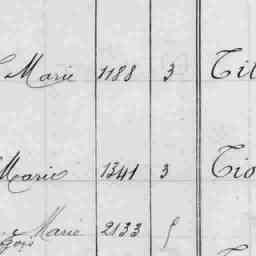 Marie 1188 3 Til
Marie 1341 3 Tio
Marie 2133